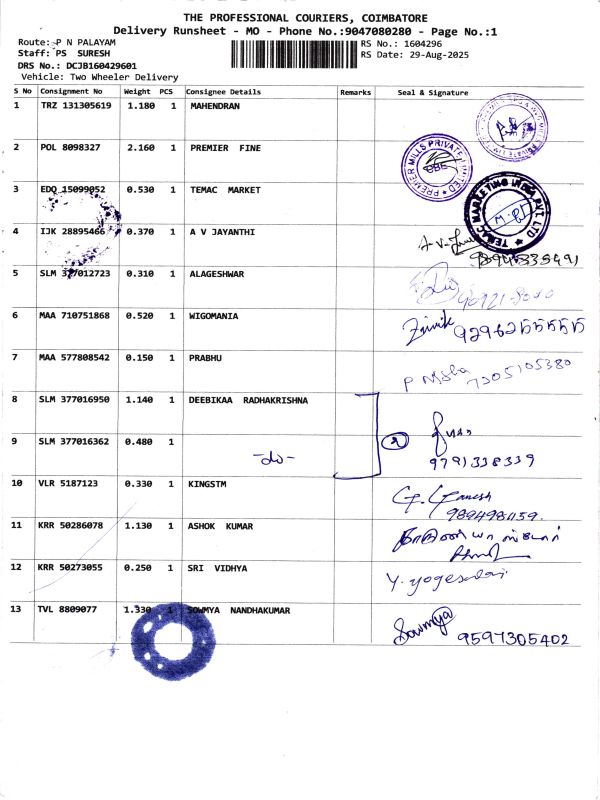 THE PROFESSIONAL COURIERS, COIMBATORE
Delivery Runsheet - MO - Phone No.:9047080280 - Page No.:1
Route: P N PALAYAM
Staff: PS SURESH
DRS No.: DCJB160429601
Vehicle: Two Wheeler Delivery
RS No.: 1604296
RS Date: 29-Aug-2025
S No Consignment No Weight PCS Consignee Details Remarks Seal & Signature
1 TRZ 131305619 1.180 1 MAHENDRAN
2 POL 8098327 2.160 1 PREMIER FINE
PREMIER MILLS PRIVATE LIMITED
CBE
3 EDQ 15099052 0.530 1 TEMAC MARKET
TEMAC MARKETING INDIA PVT. LTD
4 IJK 28895466 0.370 1 A V JAYANTHI
5 SLM 377012723 0.310 1 ALAGESHWAR
6 MAA 710751868 0.520 1 WIGOMANIA
7 MAA 577808542 0.150 1 PRABHU
7305105380
8 SLM 377016950 1.140 1 DEEBIKAA RADHAKRISHNA
2
9 SLM 377016362 0.480 1 -do-
9791338339
10 VLR 5187123 0.330 1 KINGSTM
G. Ganesh
11 KRR 50286078 1.130 1 ASHOK KUMAR
12 KRR 50273055 0.250 1 SRI VIDHYA
13 TVL 8809077 1.330 1 SOWMYA NANDHAKUMAR
Sowmya 9597305402